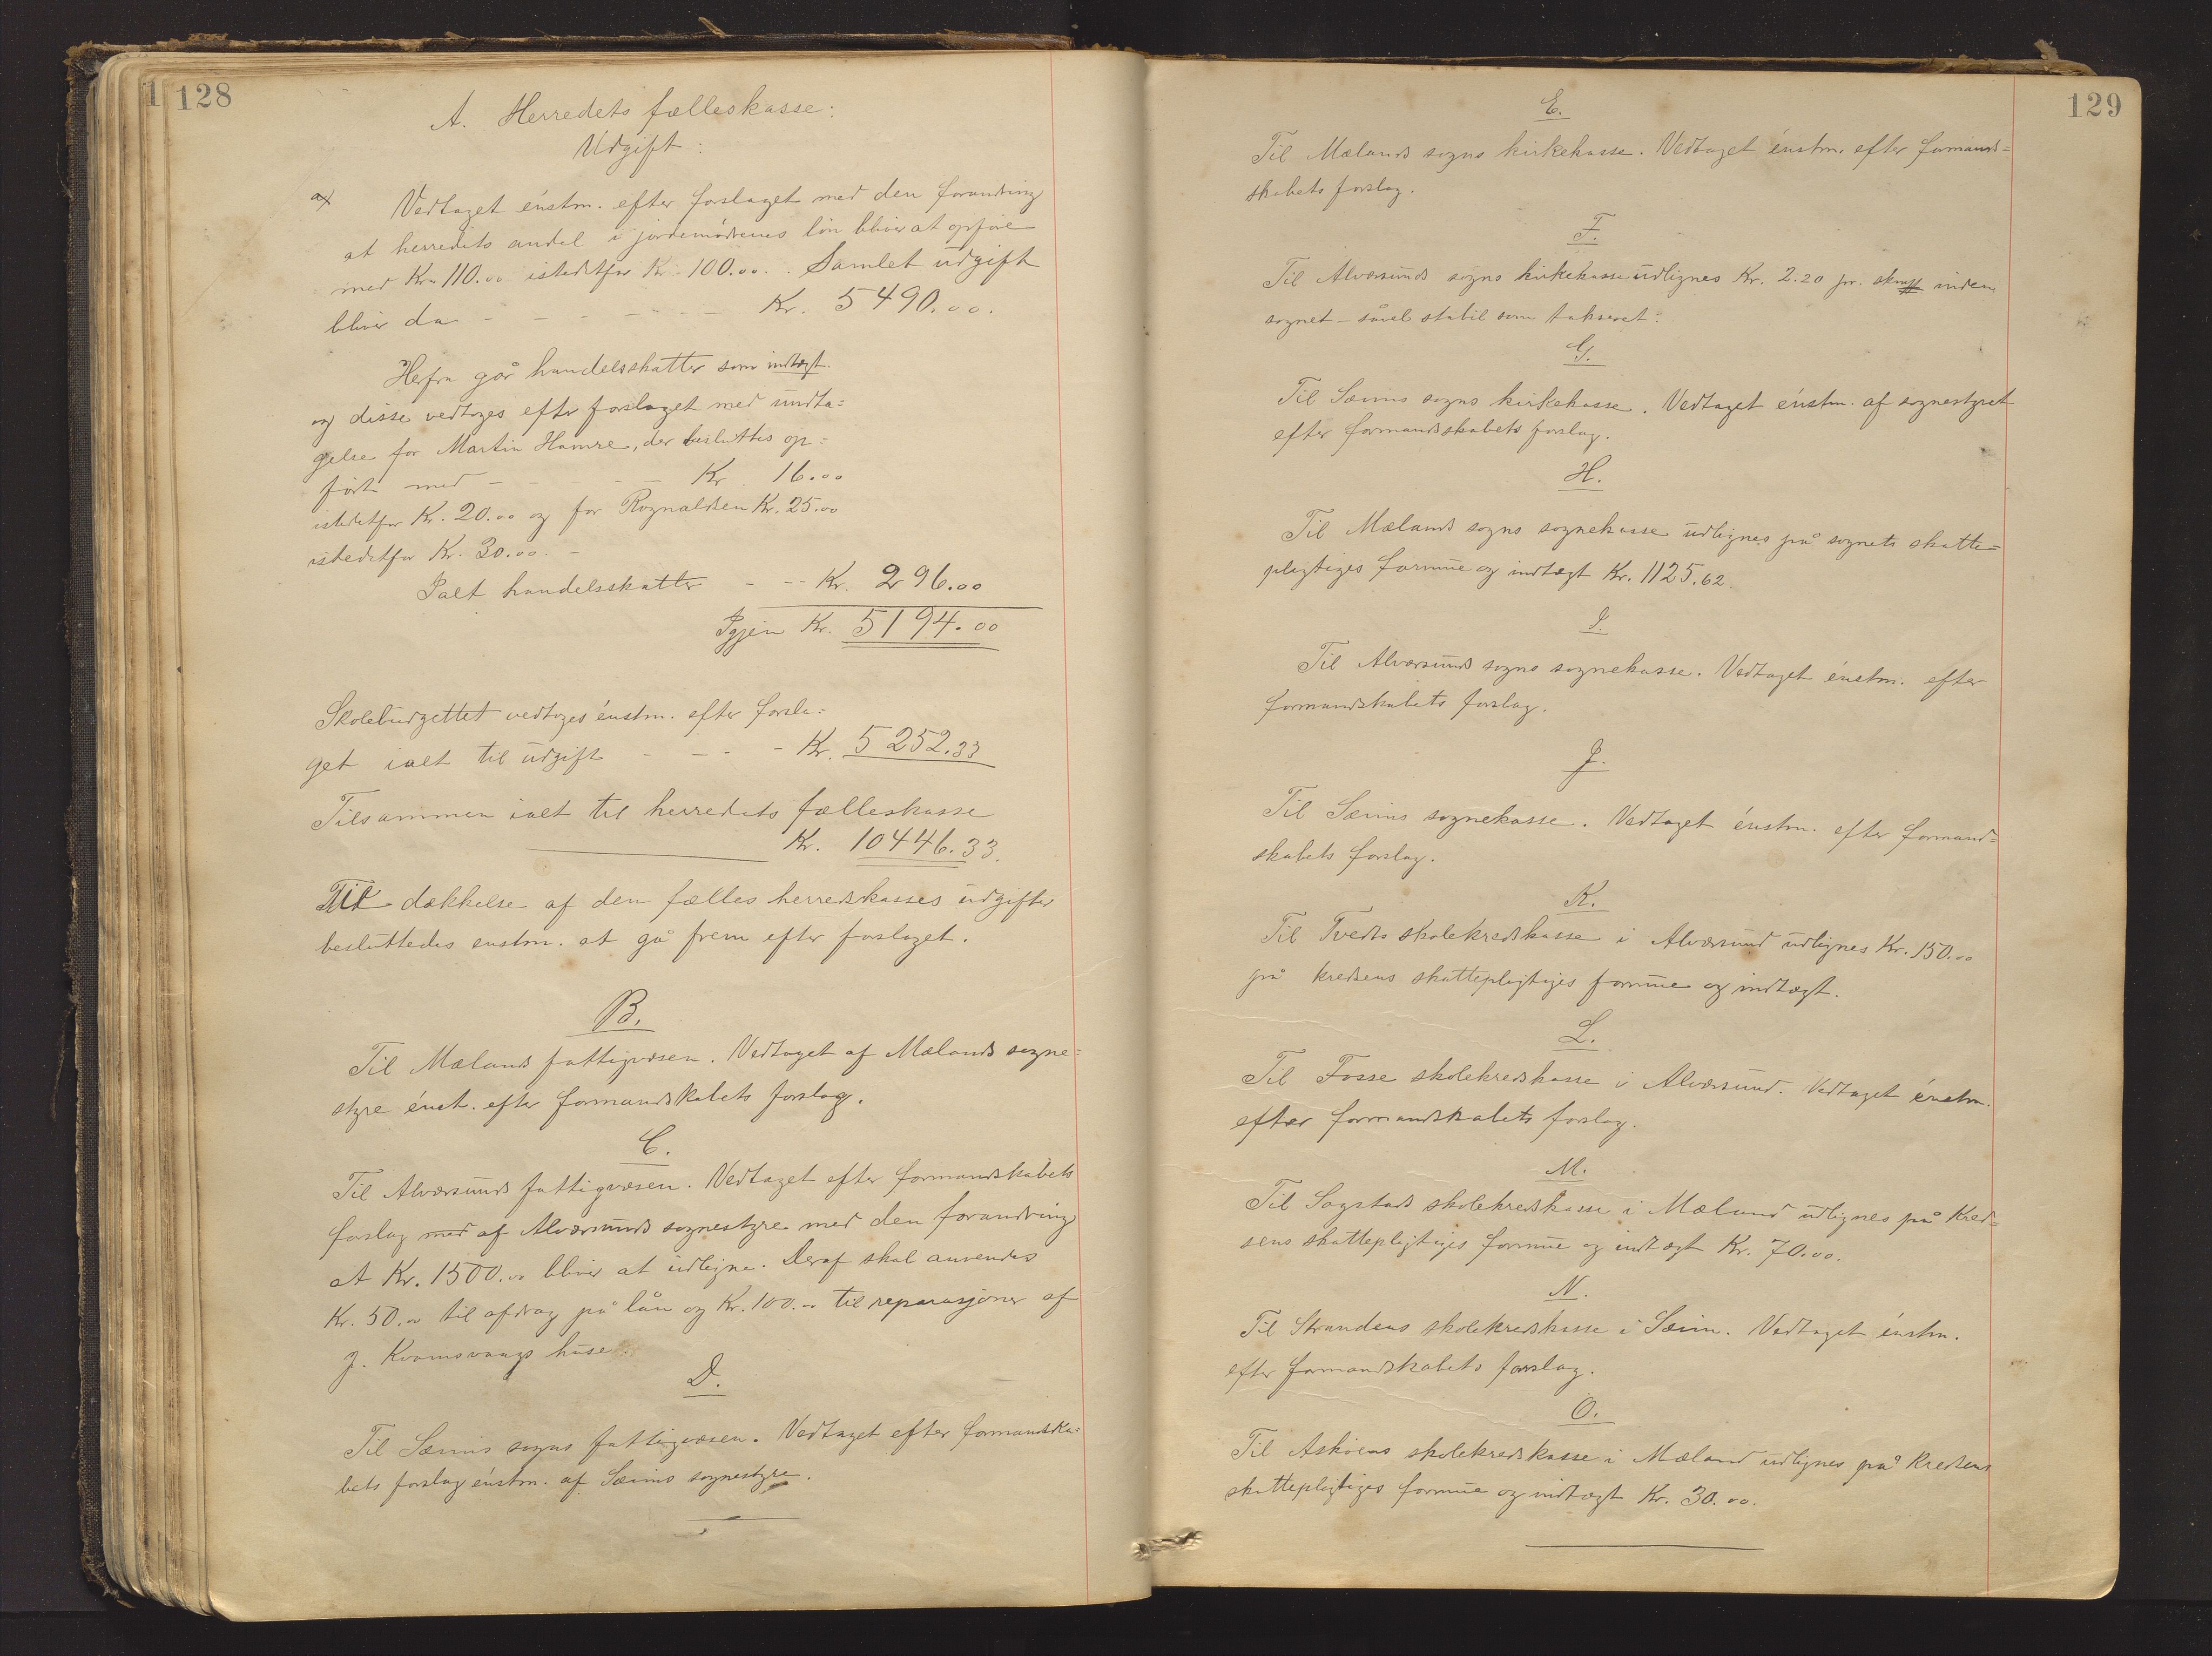 128
A. Herredets fælleskasse:
Udgift:
a) Vedtaget énstm. efter forslaget med den forandring
at herredets andel i jordemødrenes løn bliver at opføre
med Kr. 110.00 istedetfor Kr. 100.00. Samlet udgift
bliver da - - - - - - Kr. 5490.00.
Herfra går handelsskatter som indtægt.
og disse vedtoges efter forslaget med undta=
gelse for Martin Hamre, der besluttes op=
ført med - - - - Kr. 16.00
istedetfor Kr. 20.00 og for Rognaldsen Kr. 25.00
istedetfor Kr. 30.00. -
Ialt handelsskatter - -- Kr. 296.00
Igjen Kr. 5194.00
Skolebudgettet vedtoges énstm. efter forsla=
get ialt til udgift - - - - Kr. 5252.33
Tilsammen ialt til herredets fælleskasse
Kr. 10446.33.
Til dækkelse af den fælles herredskasses udgifter
besluttedes enstm. at gå frem efter forslaget.
B.
Til Mælands fattigvæsen. Vedtaget af Mælands sogne=
styre énst. efter formandskabets forslag.
C.
Til Alværsunds fattigvæsen. Vedtaget efter formandskabets
forslag med af Alværsunds sognestyre med den forandring
at Kr. 1500.00 bliver at udligne. Deraf skal anvendes
Kr. 50.00 til afdrag på lån og Kr. 100.- til reparasjoner af
g. Kvamsvaags huse.
D.
Til Sæims sogns fattigvæsen. Vedtaget efter formandska=
bets forslag énstm. af Sæims sognestyre.
129
E.
Til Mælands sogns kirkekasse. Vedtaget énstm. efter formands=
skabets forslag.
F.
Til Alværsunds sogns kirkekasse udlignes Kr. 2.20 pr. skm inden
sognet - såvel stabil som takseret.
G.
Til Sæims sogns kirkekasse. Vedtaget énstm. af sognestyret
efter formandskabets forslag.
H.
Til Mælands sogns sognekasse udlignes på sognets skatte=
plegtiges formue og indtægt Kr. 1125.62.
I.
Til Alværsunds sogns sognekasse. Vedtaget énstm. efter
formandskabets forslag.
J.
Til Sæims sognekasse. Vedtaget énstm. efter formand=
skabets forslag.
K.
Til Tveds skolekredskasse i Alværsund udlignes Kr. 150.00
på kredsens skatteplegtiges formue og indtægt.
L.
Til Fosse skolekredskasse i Alværsund. Vedtaget énstm.
efter formandskabets forslag.
M.
Til Sagstads skolekredskasse i Mæland udlignes på Kred=
sens skatteplegtiges formue og indtægt Kr. 70.00.
N.
Til Strandens skolekredskasse i Sæim. Vedtaget énstm.
efter formandskabets forslag.
O.
Til Askøens skolekredskasse i Mæland udlignes på Kredsens
skatteplegtiges formue og indtægt Kr. 30.00.